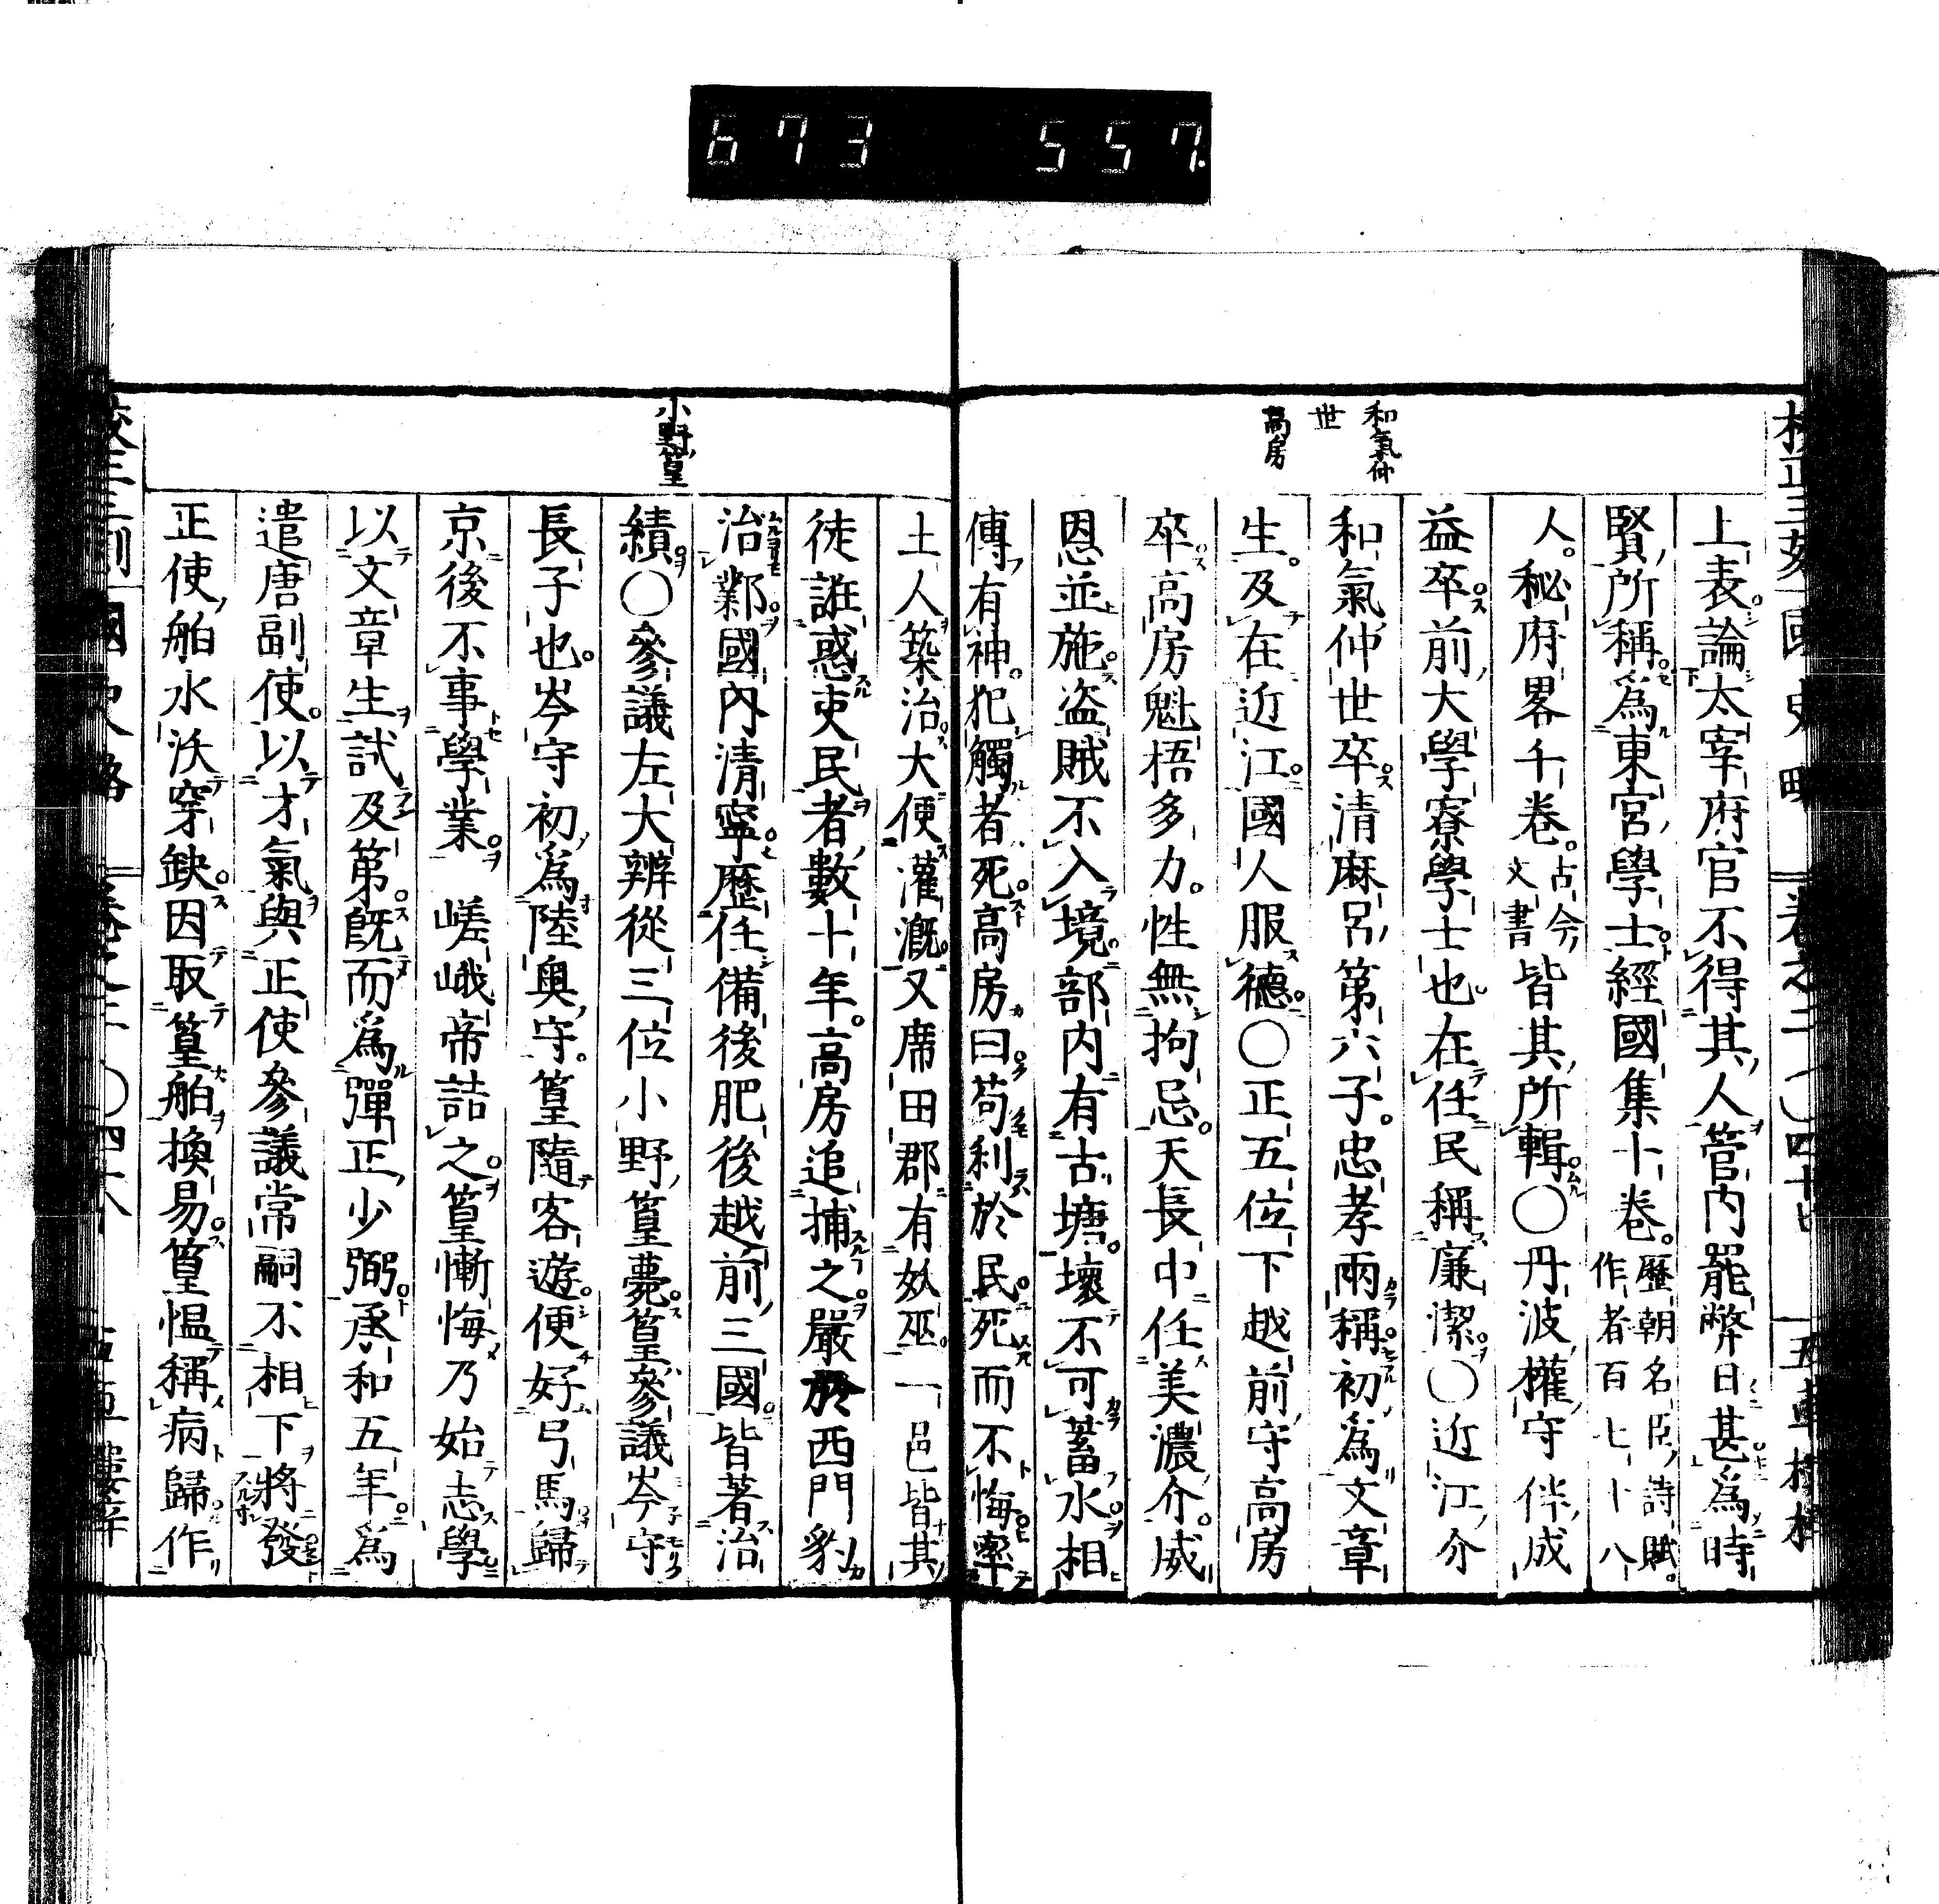 673 557
和氣仲
世
高房
上表論太宰府官不得其人管内罷弊日甚爲時
賢所稱爲東宮學士經國集十卷歷朝名臣詩賦作者百七十八
人秘府畧千卷古今文書皆其所輯〇丹波權守伴成
益卒前大學寮學士也在任民稱廉潔〇近江介
和氣仲世卒清麻呂第六子忠孝兩稱初爲文章
生及在近江國人服德〇正五位下越前守高房
卒高房魁梧多力性無拘忌天長中任美濃介威
恩並施盜賊不入境部内有古塘壞不可蓄水相
傳有神犯觸者死高房曰苟利於民死而不悔率
小野篁
土人築治大便灌漑又席田郡有妖巫一邑皆其
徒誑惑吏民者數十年高房追捕之嚴於西門豹
治鄴國內清寧歷任備後肥後越前三國皆著治
績〇參議左大辨從三位小野篁薨篁參議岑守
長子也岑守初爲陸奧守篁隨客遊便好弓馬歸
京後不事學業 嵯峨帝詰之篁慚悔乃始志學
以文章生試及第既而爲彈正少弼承和五年爲
遣唐副使以才氣與正使參議常嗣不相下將發
正使舶水沃穿缺因取篁舶換易篁慍稱病歸作